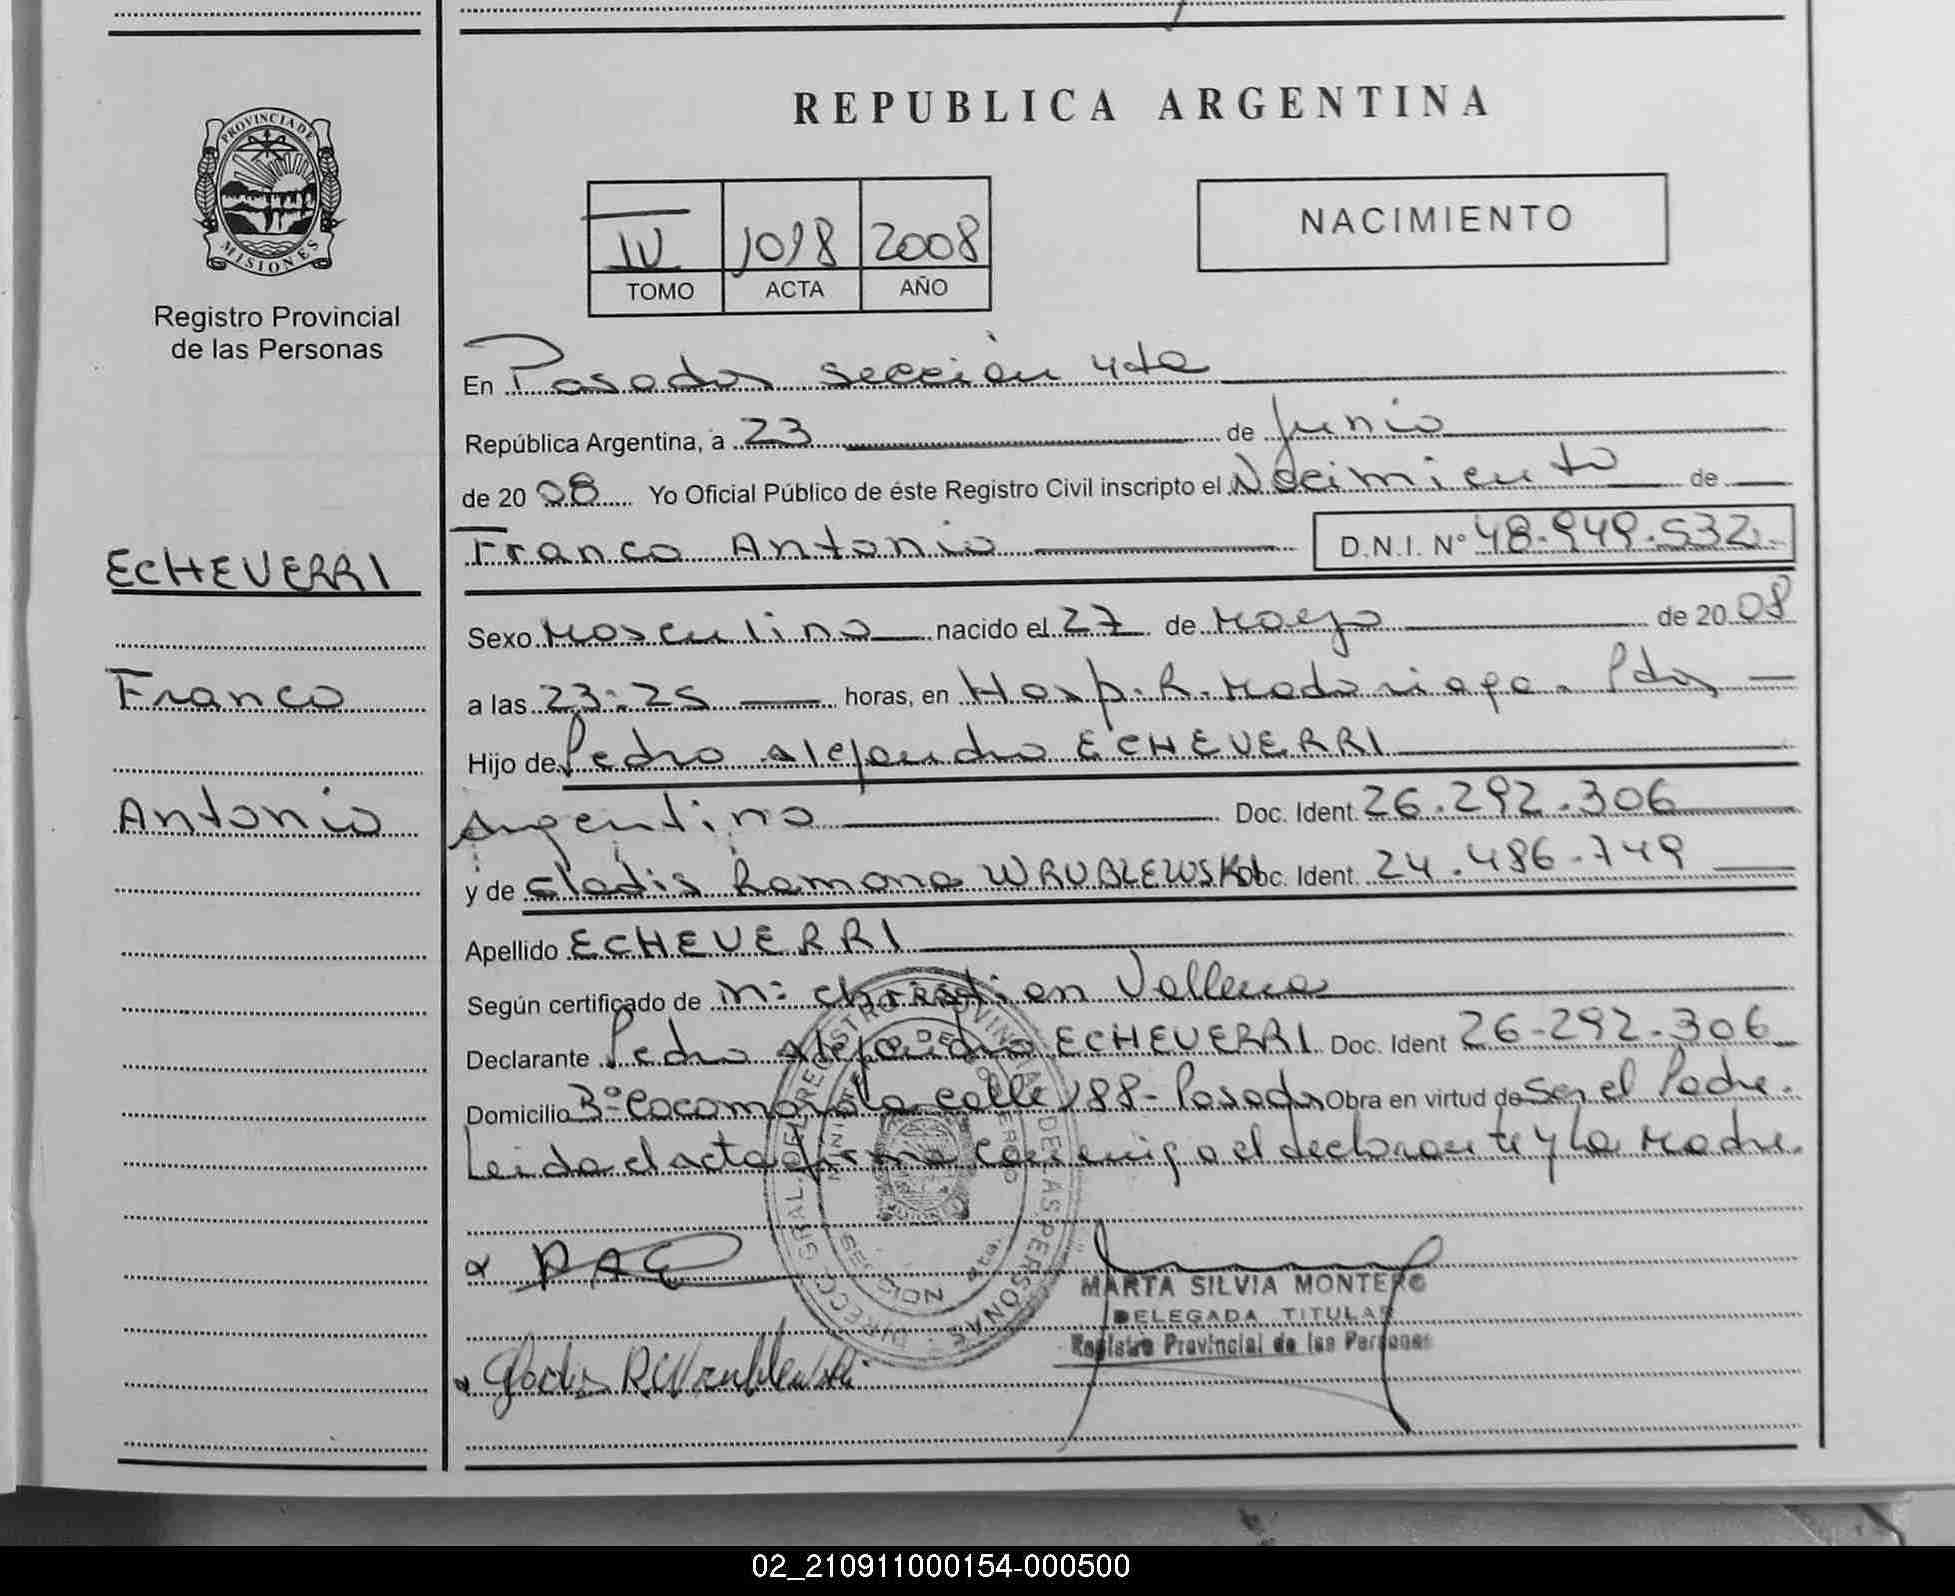 PROVINCIA DE
MISIONES
Registro Provincial
de las Personas
ECHEVERRI
Franco
Antonio
REPUBLICA ARGENTINA
IV 1098 2008
TOMO ACTA AÑO
NACIMIENTO
En Posadas sección 4ta
República Argentina, a 23 de Junio
de 2008 Yo Oficial Público de éste Registro Civil inscripto el Nacimiento de
Franco Antonio D.N.I. N° 48.949.532.
Sexo Masculino nacido el 27 de Mayo de 2008
a las 23:25 horas, en Hosp. R. Madariaga. Pdas
Hijo de Pedro Alejandro ECHEVERRI
Argentino Doc. Ident. 26.292.306
y de Gladis Ramona WRUBLEWSKI Doc. Ident. 24.486.749
Apellido ECHEVERRI
Según certificado de M: Christian Vallena
Declarante Pedro Alejandro ECHEVERRI Doc. Ident 26-292-306
Domicilio B° Cocomarola calle 188-Posadas Obra en virtud de Ser el Padre.
Leida el acta firma conmigo el declarante y la Madre.
x PAE
MARTA SILVIA MONTERO
DELEGADA TITULAR
Registro Provincial de las Personas
x Gladis R Wrublewski
02_210911000154-000500